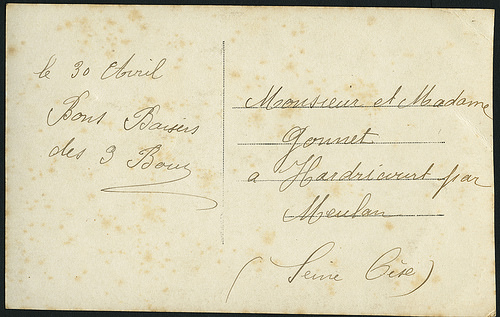 le 30 Avril
Bons Baisers
des 3 Bouy
Monsieur et Madame
Gonnet
a Hardricourt par
Meulan
(Seine Oise)